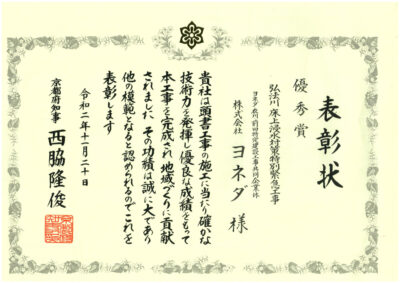 表彰状
優秀賞
弘法川 床上浸水対策特別緊急工事
株式会社 ヨネダ 様
貴社は頭書工事の施工に当たり確かな
技術力を発揮し優良な成績をもって
本工事を完成され地域づくりに貢献
されました その功績は誠に大であり
他の模範となると認められるのでこれを
表彰します
令和二年十一月二十日
京都府知事 西脇隆俊